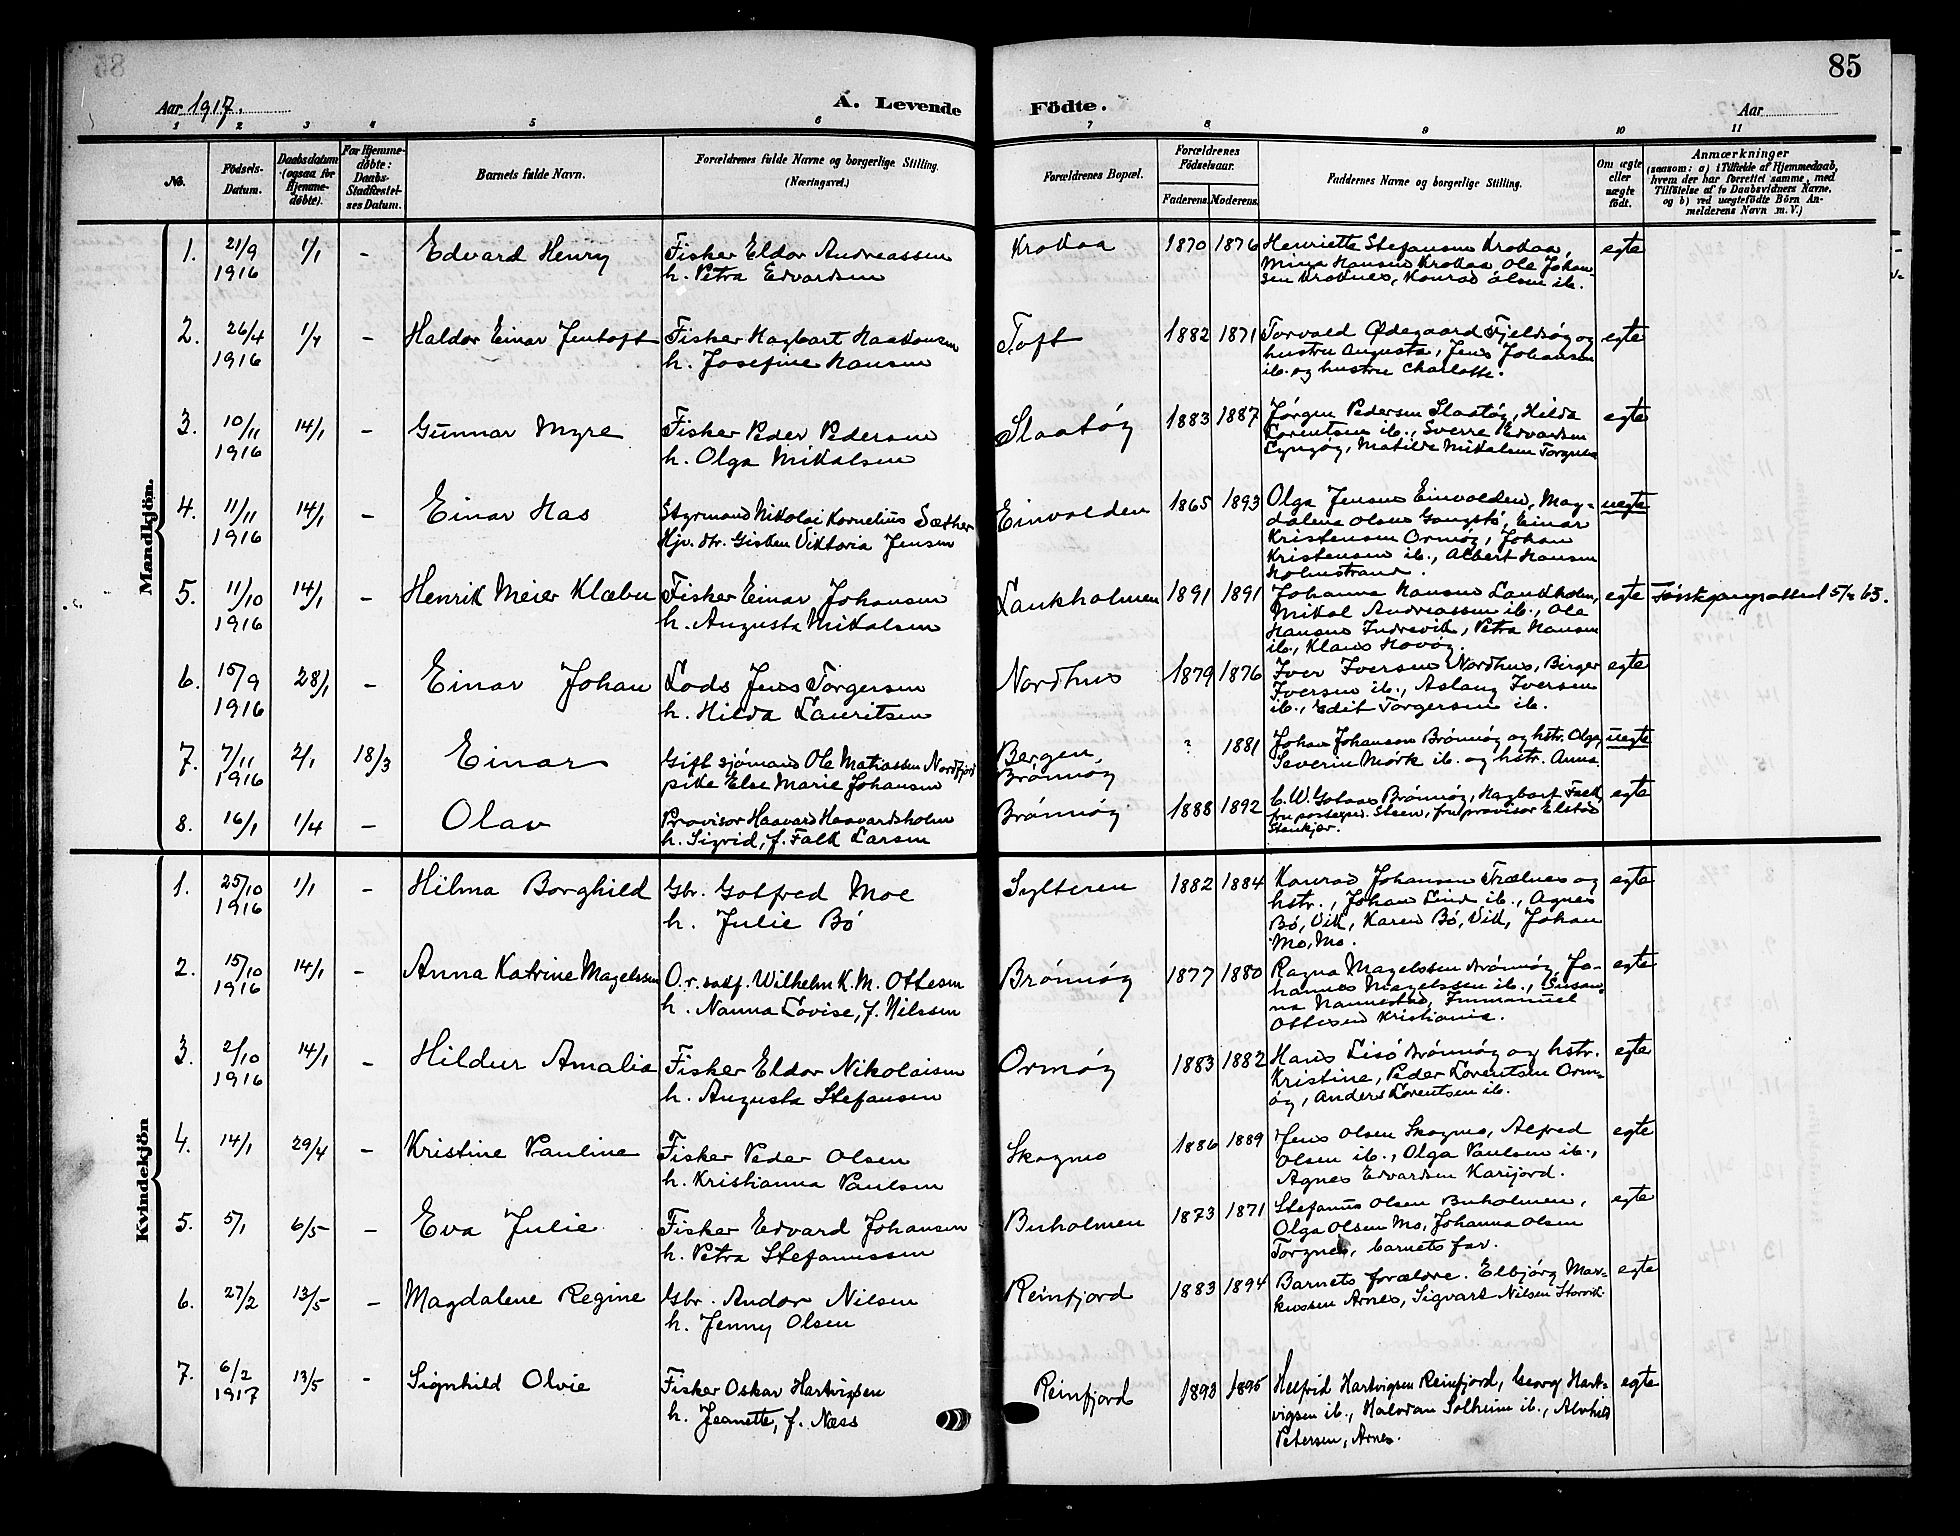 85
Aar 1917.
A. Levende Födte.
Aar
1 2 3 4 5 6 7 8 9 10 11
No.
Födsels-Datum.
Daabsdatum (ogsaa for Hjemme-døbte).
For Hjemme-døbte: Daabs-Stadfæstel-ses Datum.
Barnets fulde Navn.
Forældrenes fulde Navne og borgerlige Stilling. (Næringsvei.)
Forældrenes Bopæl.
Forældrenes Födselsaar.
Faderens. Moderens.
Faddernes Navne og borgerlige Stilling.
Om ægte eller uægte födt.
Anmærkninger
(saasom: a) i Tilfælde af Hjemmedaab, hvem der har forrettet samme, med Tilföielse af to Daabsvidners Navne, og b) ved uægtefödte Börn Anmelderens Navn m. V.)
Mandkjön.
1. 21/9 1916 1/1 - Edvard Henry
Fisker Eldor Andreassen
h. Petra Edvardsen
Krokaa 1870 1876
Henriette Stefansen Krokaa,
Mina Hansen Krokaa, Ole Johan-
sen Kroknes, Konrad Olsen ib.
egte
2. 26/4 1916 1/1 - Haldor Einar Jentoft
Fisker Hagbart Haakonsen
h. Josefine Hansen
Toft 1882 1871
Torvald Ødegaard Fjeldøy og
hustru Augusta, Jens Johansen
ib. og hustru Charlotte.
egte
3. 10/11 1916 14/1 - Gunnar Myre
Fisker Peder Pedersen
h. Olga Mikalsen
Slaatøy 1883 1887
Jørgen Pedersen Slaatøy, Hilda
Lorentsen ib., Sverre Edvardsen
Lyngøy, Matilde Mikalsen Torgnes
egte
4. 11/11 1916 14/1 - Einar Has
Styrmand Nikolai Kornelius Sæther
Hjv. dtr. Gisken Viktoria Jensen
Einvolden 1865 1893
Olga Jensen Einvolden, Mag-
dalena Olsen Gangstø, Einar
Kristensen Ormøy, Johan
Kristensen ib., Albert Hansen
Holmstrand.
uegte
5. 11/10 1916 14/1 - Henrik Meier Klæbu
Fisker Einar Johansen
h. Augusta Mikalsen
Laukholmen 1891 1891
Johanna Hansen Laukholm,
Mikal Andreassen ib., Ole
Hansen Indrevik, Petra Hansen
ib., Klaus Havøy.
egte
6. 15/9 1916 28/1 - Einar Johan
Lods Jens Torgersen
h. Hilda Lauritsen
Nordhus 1879 1876
Iver Iversen Nordhus, Birger
Iversen ib., Aslaug Iversen
ib., Edit Torgersen ib.
egte
7. 7/11 1916 2/1 18/3 Einar
Gift sjømand Ole Matiassen Nordfjord
pike Else Marie Johansen
Bergen, Brønnøy ? 1881
Johan Johansen Brønnøy og hstr. Olga,
Severin Mørk ib. og hstr. Anna.
uegte
8. 16/1 1/4 - Olav
Provisor Haavard Haavardsholm
h. Sigrid, f. Falk Larsen
Brønnøy 1888 1892
Brønnøy, Hagbart Falk,
Steen, fru provisor
Stenkjær.
egte
Kvindekjön
1. 25/10 1916 1/1 - Hilma Borghild
Gbr. Gotfred Moe
h. Julie Bø
Sylteren 1882 1884
Konrad Johansen Trælnes og
hstr., Johan Lind ib., Agnes
Bø, Vik, Karen Bø, Vik, Johan
Mo, Mo.
egte
2. 15/10 1916 14/1 - Anna Katrine Magelssen
O.r. sakf. Wilhelm K. M. Ottesen
h. Nanna Lovise, f. Nilssen
Brønnøy 1877 1880
Ragna Magelssen Brønnøy, Jo-
hannes Magelssen ib., Susan-
na Nannestad, Immanuel
Ottesen Kristiania.
egte
3. 2/10 1916 14/1 - Hildur Amalia
Fisker Eldor Nikolaisen
h. Augusta Stefansen
Ormøy 1883 1882
Hans Lisø Brønnøy og hstr.
Kristine, Peder Lorentsen Orm-
øy, Anders Lorentsen ib.
egte
4. 14/1 29/4 - Kristine Pauline
Fisker Peder Olsen
h. Kristianna Paulsen
Skogmo 1886 1889
Jens Olsen Skogmo, Alfred
Olsen ib., Olga Paulsen ib.,
Agnes Edvardsen Karijord.
egte
5. 5/1 6/5 - Eva Julie
Fisker Edvard Johansen
h. Petra Stefanussen
Buholmen 1873 1871
Stefanus Olsen Buholmen,
Olga Olsen Mo, Johanna Olsen
Torgnes, barnets far.
egte
6. 27/2 13/5 - Magdalene Regine
Gbr. Andor Nilsen
h. Jenny Olsen
Reinfjord 1883 1894
Barnets forældre. Elbjørg Mar-
kussen Arnes, Sigvart Nilsen Storvik.
egte
7. 6/2 1917 13/5 - Signhild Olvie
Fisker Oskar Hartvigsen
h. Jeanette, f. Næss
Reinfjord 1893 1895
Helfrid Hartvigsen Reinfjord, Georg Hart-
vigsen ib., Halvdan Solheim ib., Alvhild
Petersen, Arnes.
egte